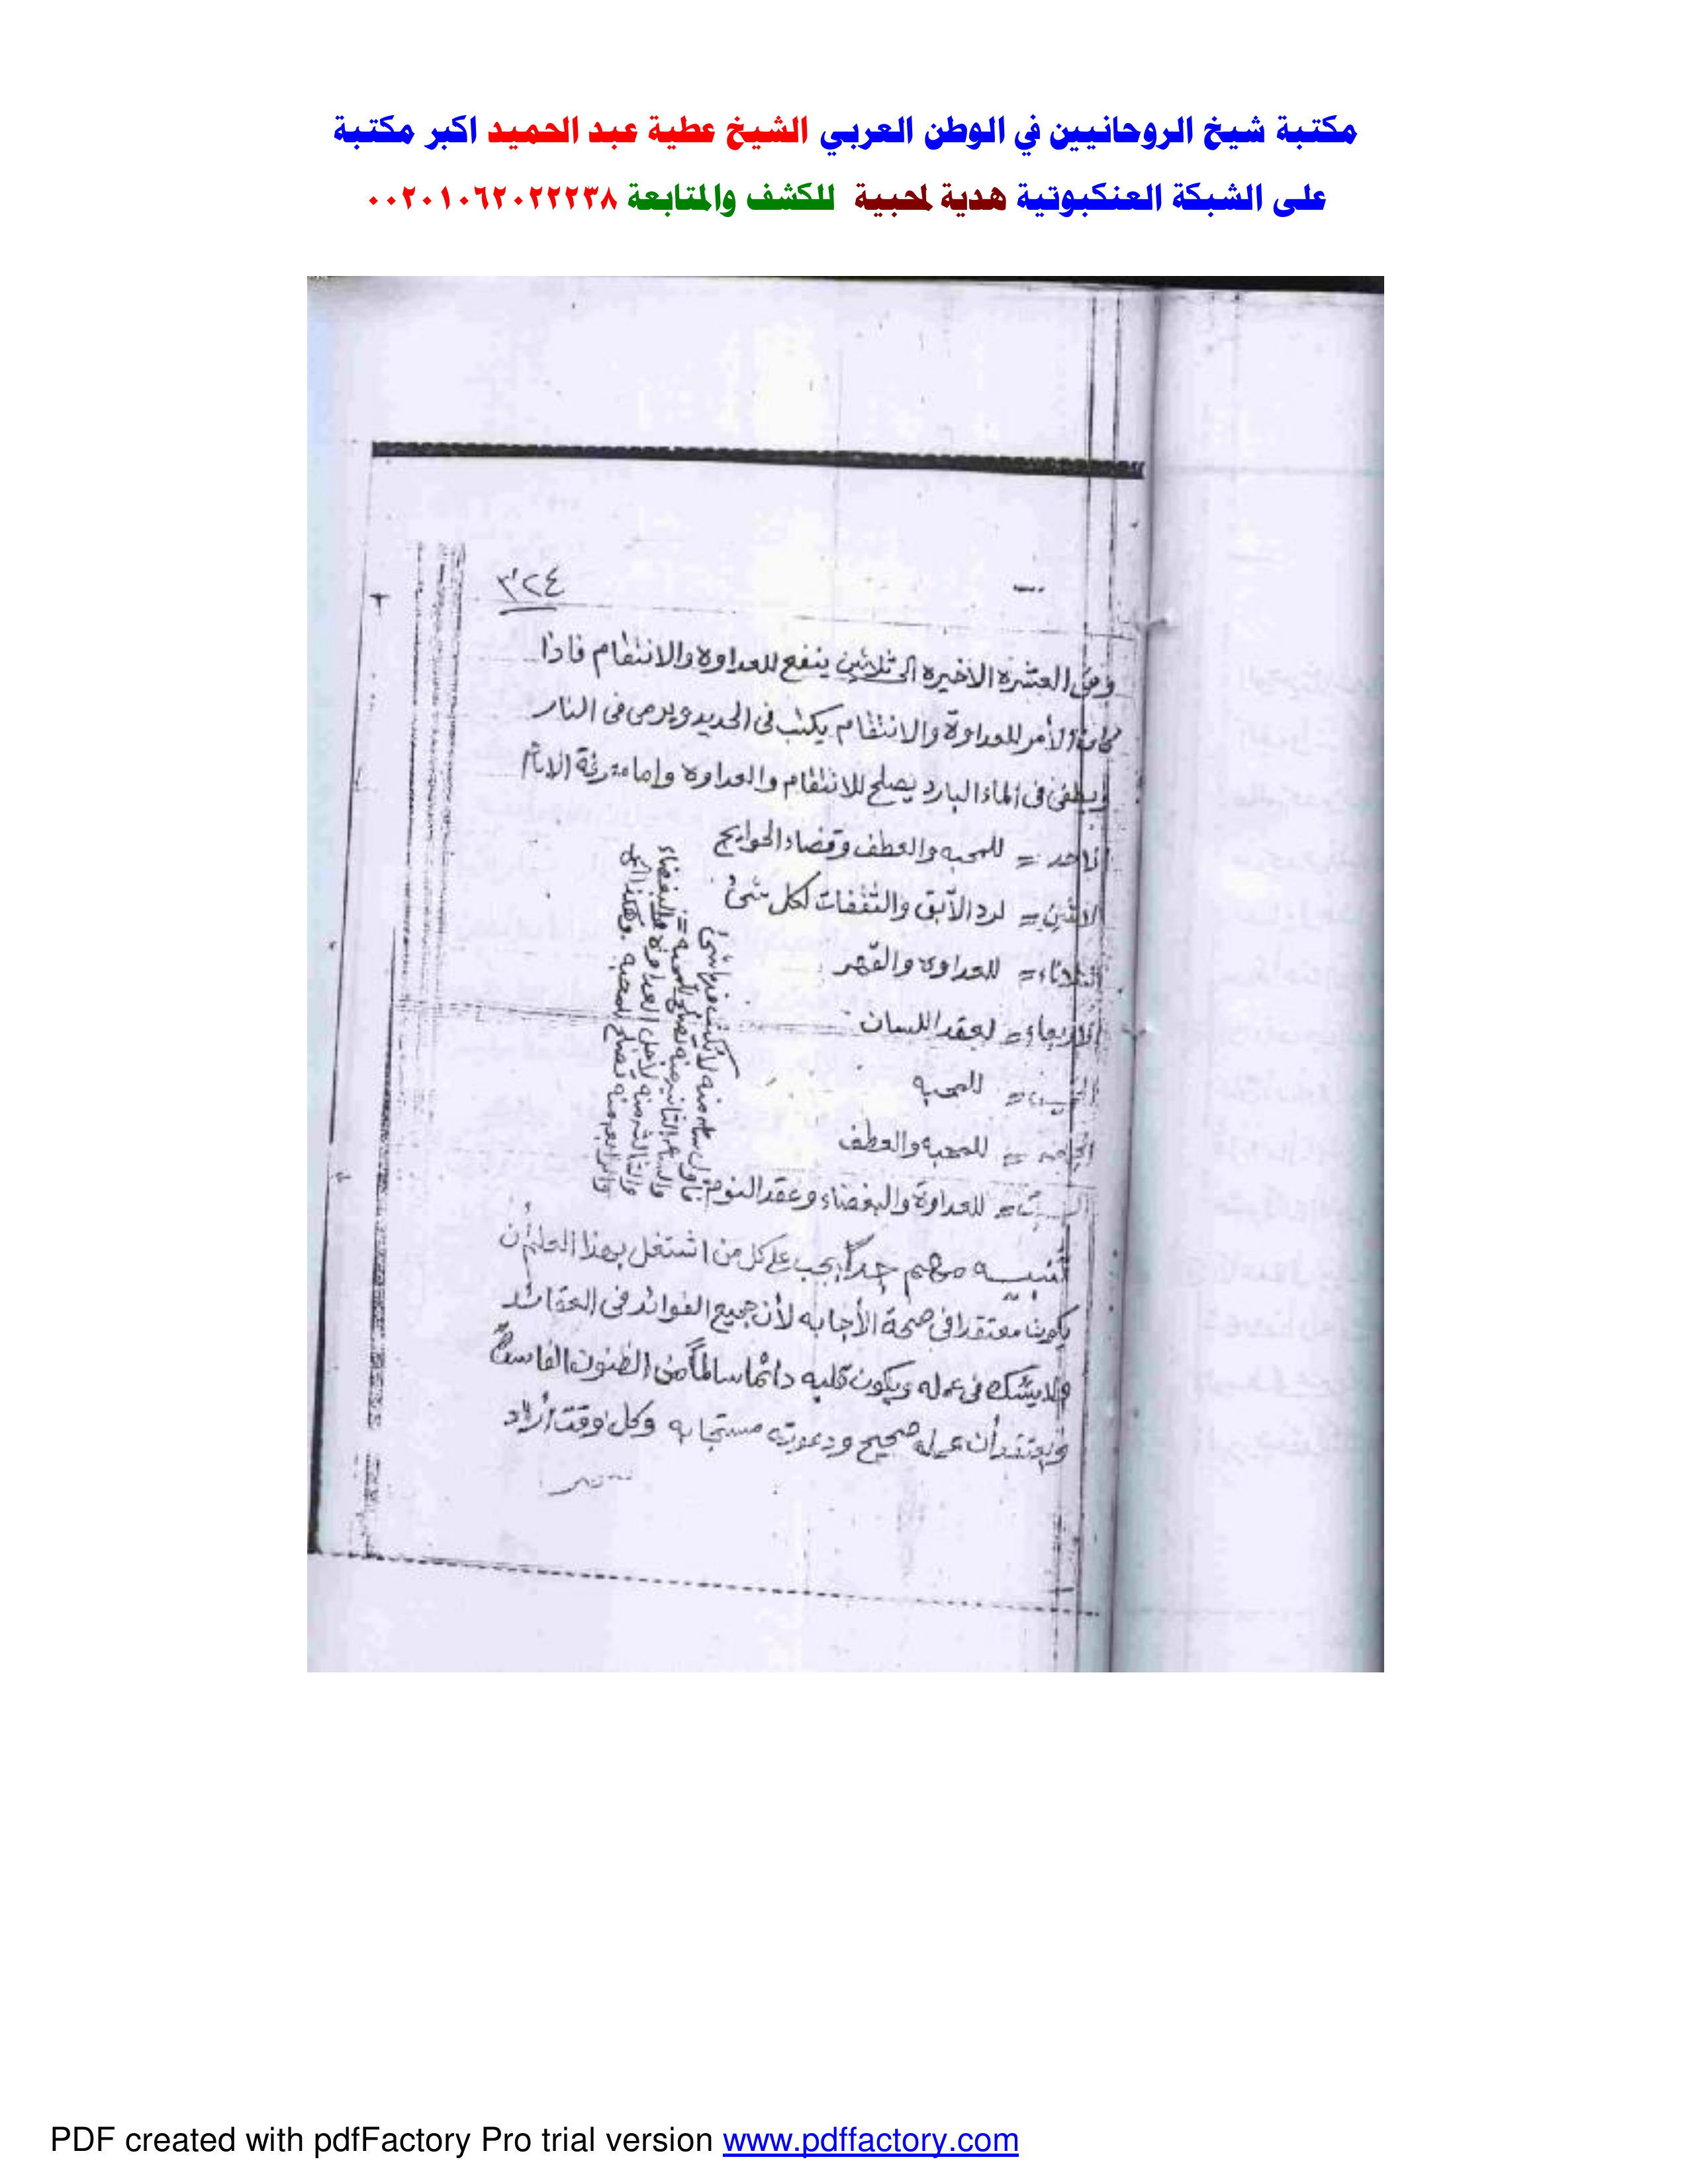 مكتبة شيخ الروحانيين في الوطن العربي الشيخ عطية عبد الحميد اكبر مكتبة
على الشبكة العنكبوتية هدية لمحبية للكشف والمتابعة ٠٠٢٠١٠٦٢٠٢٢٢٣٨
٣٢٤
وفى العشرة الاخيره الى ثلاثين ينفع للعداوة والانتقام فاذا
كان الأمر للعداوة والانتقام يكتب فى الحديد ويرمى فى النار
ويطفى فى الماء البارد يصلح للانتقام والعداوة واما معرفة الايام
الاحد = للمحبه والعطف وقضاء الحوايج
الاثنين = لرد الأبق والتثقفات لكل شىء
الثلاثاء = للعداوه والقهر
الاربعاء = لعقد اللسان
الخميس = للمحبه
الجمعه = للمحبه والعطف
السبت = للعداوة والبغضاء وعقد النوم
أول ساعه منه لا تكتب فيها شئ
والساعه الثانيه منه تصلح للمحبه =
والثالثه منه لأجل العداوة والبغضاء
والرابعه منه تصلح للمحبه وهكذا
تنبيه مهم جداً يجب على كل من اشتغل بهذا العلم أن
يكون معتقدا فى صحة الأجابه لأن جميع الفوائد فى العقائد
ولا يشك فى عمله ويكون قلبه دائما سالماً من الظنون الفاسدة
ويعتقد أن عمله صحيح ودعوته مستجابه وكل وقت أراد
PDF created with pdfFactory Pro trial version www.pdffactory.com